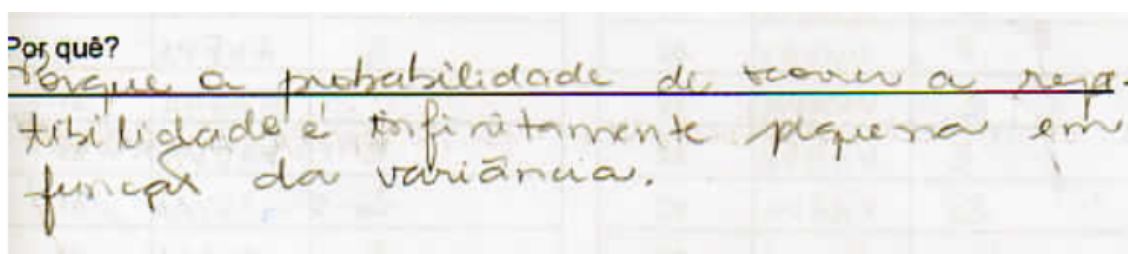 Por quê?
Porque a probabilidade de ocorrer a repe-
tibilidade é infinitamente pequena em
função da variância.